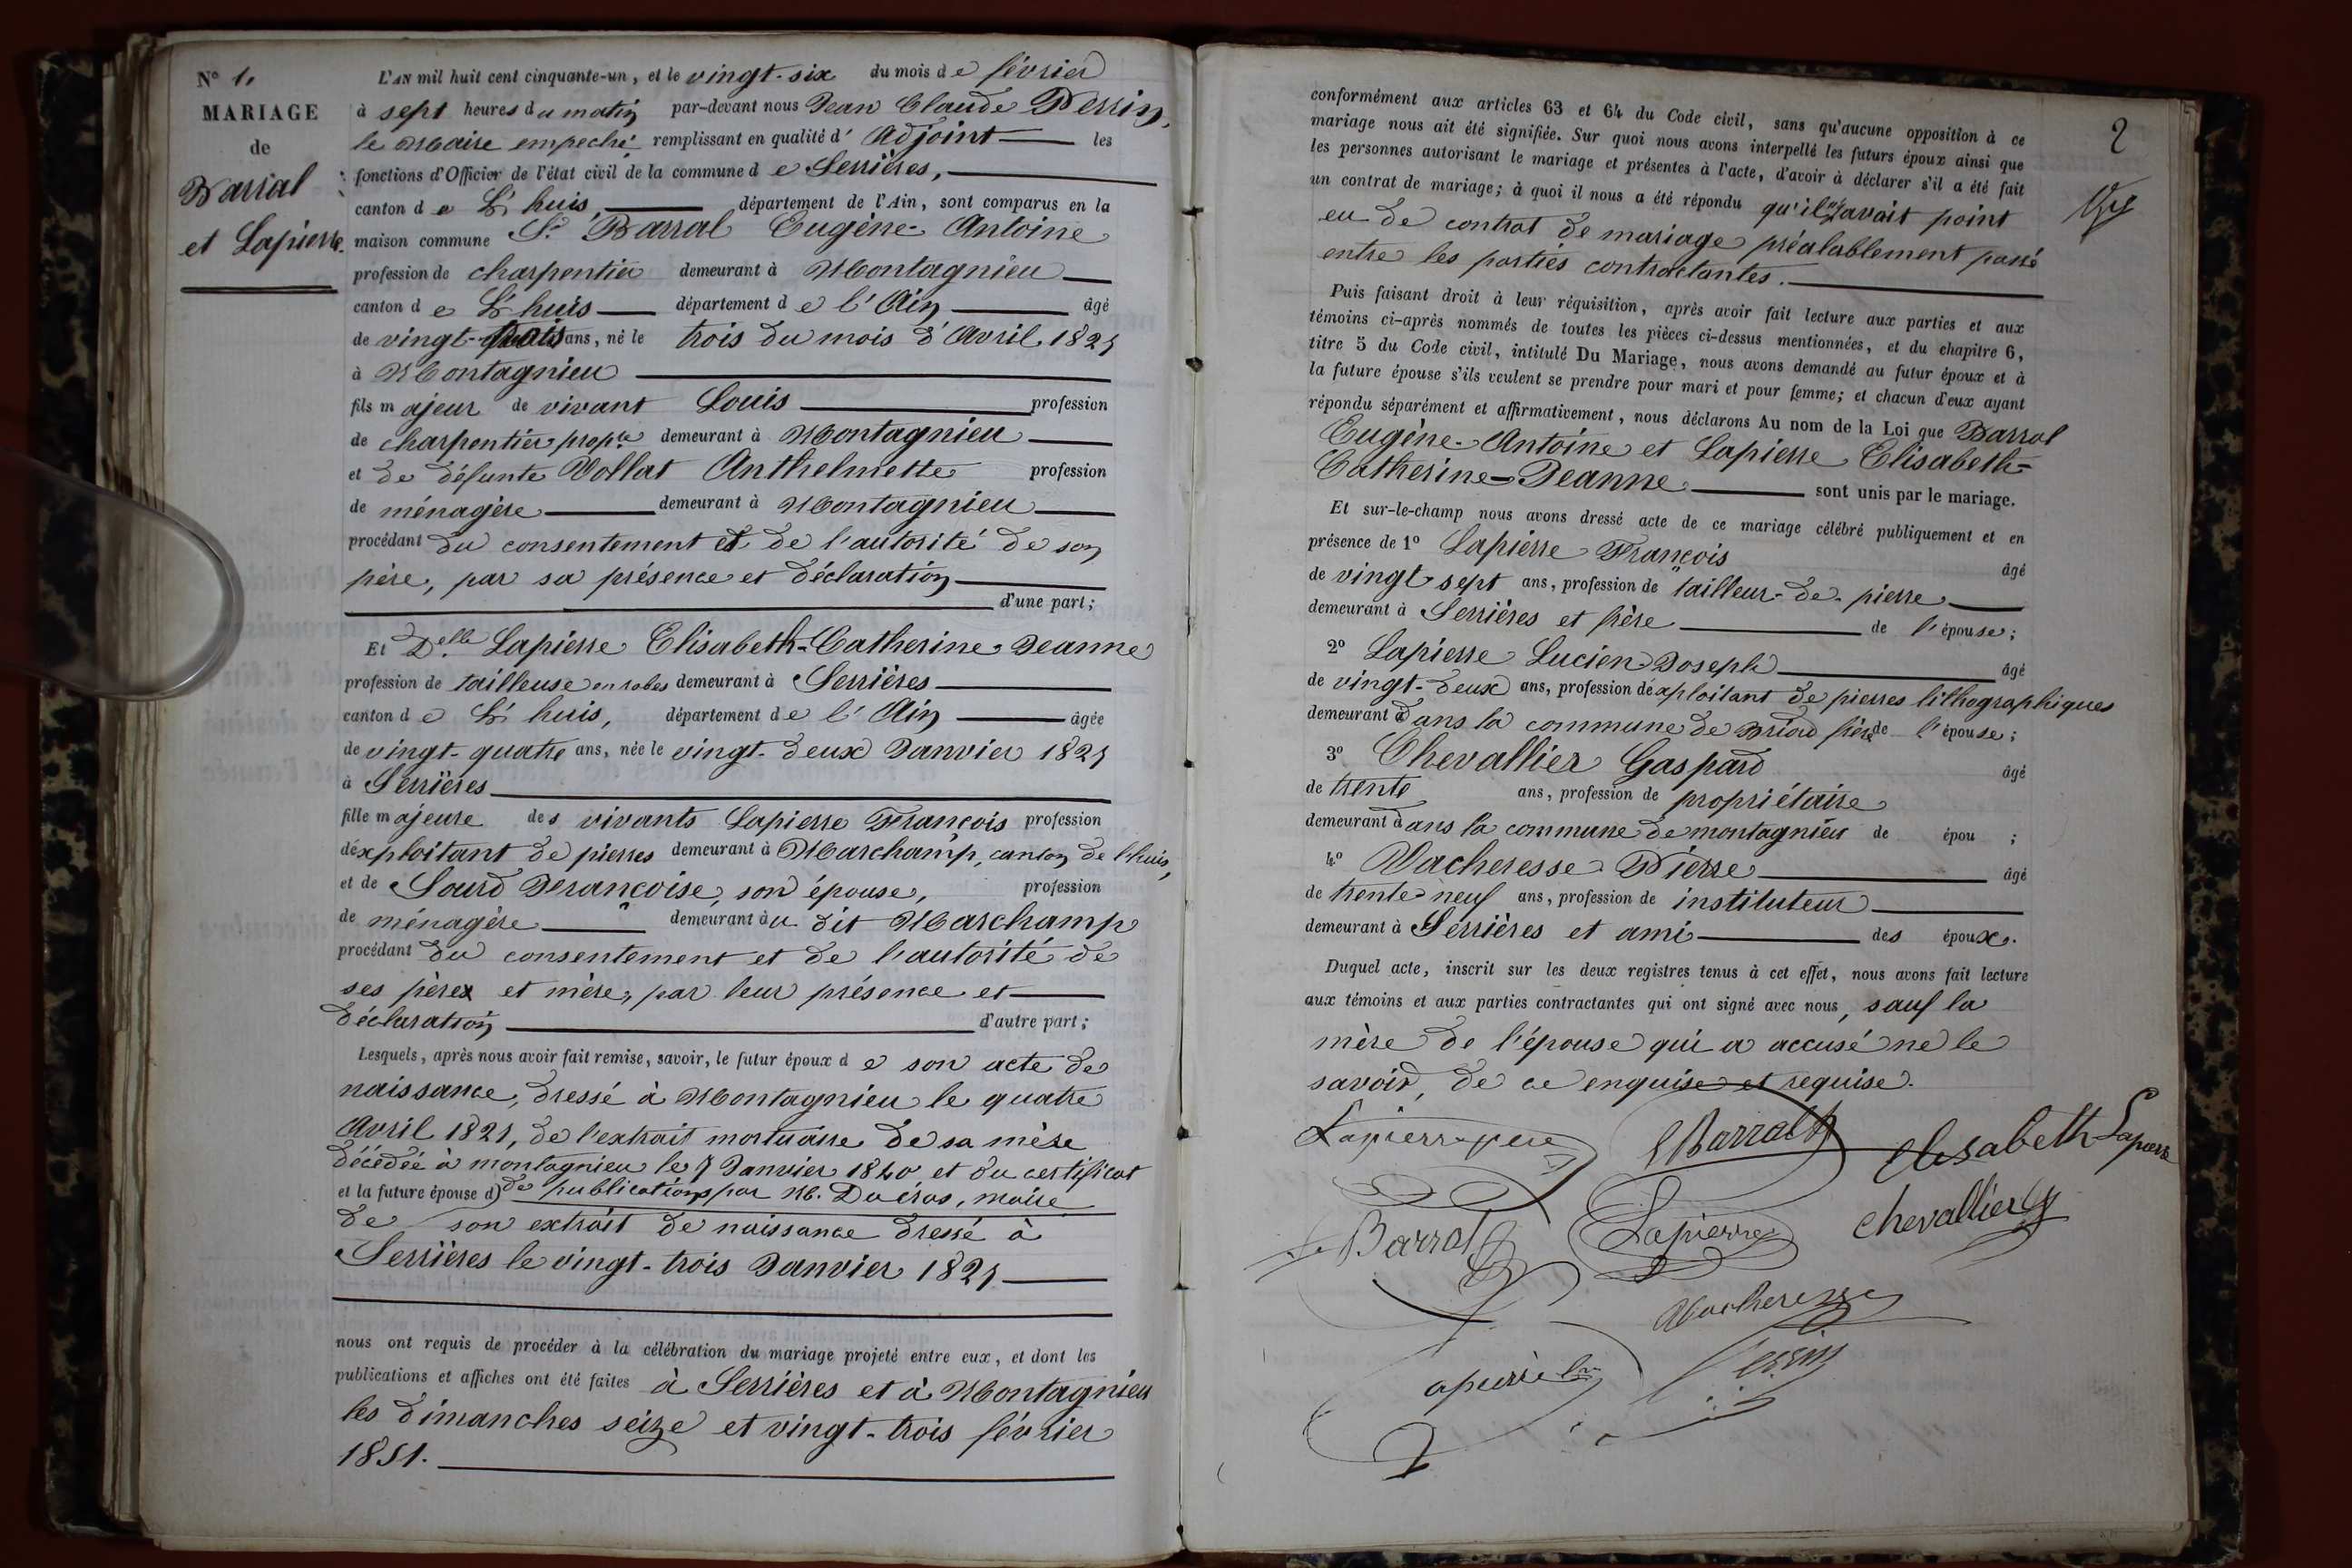 N° 1.
MARIAGE
de
Barral
et Lapierre.
L'AN mil huit cent cinquante-un, et le vingt-six du mois de février
à sept heures du matin par-devant nous Jean Claude Perrin,
le Maire empeché remplissant en qualité d'Adjoint les
fonctions d'Officier de l'état civil de la commune de Serrières,
canton de L'huis, département de l'Ain, sont comparus en la
maison commune Sr. Barral Eugène-Antoine
profession de charpentier demeurant à Montagnieu
canton de L'huis département de l'Ain âgé
de vingt- ans, né le trois du mois d'Avril 1825
à Montagnieu
fils majeur de vivant Louis profession
de charpentier propre demeurant à Montagnieu
et de défunte Vollat Anthelmette profession
de ménagère demeurant à Montagnieu
procédant du consentement et de l'autorité de son
père, par sa présence et déclaration
d'une part;
Et Delle Lapierre Elisabeth-Catherine-Jeanne
profession de tailleuse en robes demeurant à Serrières
canton de L'huis, département de l'Ain âgée
de vingt-quatre ans, née le vingt-deux Janvier 1825
à Serrières
fille majeure des vivants Lapierre François profession
d'éxploitant de pierres demeurant à Marchamp, canton de l'huis,
et de Sourd Françoise, son épouse, profession
de ménagère demeurant au dit Marchamp
procédant du consentement et de l'autorité de
ses père et mère, par leur présence et
déclaration d'autre part;
Lesquels, après nous avoir fait remise, savoir, le futur époux de son acte de
naissance, dressé à Montagnieu le quatre
Avril 1825, de l'extrait mortuaire de sa mère
décédée à montagnieu le 7 Janvier 1840 et du certificat
et la future épouse d) de publications par M. Ducros, maire
de son extrait de naissance dressé à
Serrières le vingt-trois Janvier 1825
nous ont requis de procéder à la célébration du mariage projeté entre eux, et dont les
publications et affiches ont été faites à Serrières et à Montagnieu
les dimanches seize et vingt-trois février
1851.
2
conformément aux articles 63 et 64 du Code civil, sans qu'aucune opposition à ce
mariage nous ait été signifiée. Sur quoi nous avons interpellé les futurs époux ainsi que
les personnes autorisant le mariage et présentes à l'acte, d'avoir à déclarer s'il a été fait
un contrat de mariage; à quoi il nous a été répondu qu'il n'y avait point
eu de contrat de mariage préalablement passé
entre les parties contractantes.
Puis faisant droit à leur réquisition, après avoir fait lecture aux parties et aux
témoins ci-après nommés de toutes les pièces ci-dessus mentionnées, et du chapitre 6,
titre 5 du Code civil, intitulé Du Mariage, nous avons demandé au futur époux et à
la future épouse s'ils veulent se prendre pour mari et pour femme; et chacun d'eux ayant
répondu séparément et affirmativement, nous déclarons Au nom de la Loi que Barral
Eugène-Antoine et Lapierre Elisabeth-
Catherine-Jeanne sont unis par le mariage.
Et sur-le-champ nous avons dressé acte de ce mariage célébré publiquement et en
présence de 1° Lapierre François âgé
de vingt sept ans, profession de tailleur-de-pierre
demeurant à Serrières et frère de l'épouse;
2° Lapierre Lucien Joseph âgé
de vingt-deux ans, profession d'éxploitant de pierres lithographiques
demeurant dans la commune de Briord frère de l'épouse;
3° Chevallier Gaspard âgé
de trente ans, profession de propriétaire
demeurant dans la commune de montagnieu de épou ;
4° Vacheresse Pierre âgé
de trente-neuf ans, profession de instituteur
demeurant à Serrières et ami des époux.
Duquel acte, inscrit sur les deux registres tenus à cet effet, nous avons fait lecture
aux témoins et aux parties contractantes qui ont signé avec nous, sauf la
mère de l'épouse qui a accusé ne le
savoir, de ce enquise et requise.
Lapierre père EBarral Elisabeth Lapierre
Barral Lapierre Chevallier G
Vacheresse
Perrin